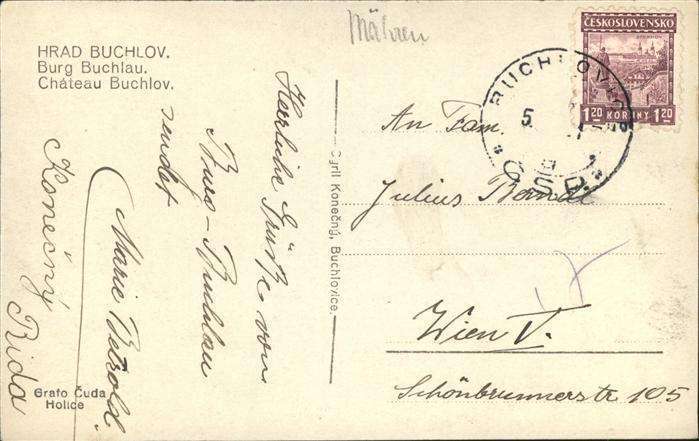 Mähren
HRAD BUCHLOV.
Burg Buchlau.
Château Buchlov.
ČESKOSLOVENSKO
1 20 KORUNY 1 20
BUCHLOV
5
ČSR
Herrliche Grüße von
Burg-Buchlau
sendet
Marie Betzold.
Konečný
Rida
Cyril Konečný, Buchlovice.
An Fam.
Julius
Wien V.
Schönbrunnerstr 105
Grafo Čuda
Holice